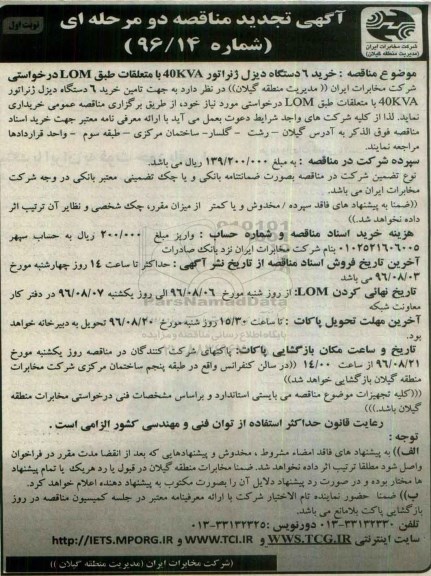 نوبت اول
آگهی تجدید مناقصه دو مرحله ای
(شماره ۹۶/۱۴)
شرکت مخابرات ایران
(مدیریت منطقه گیلان)
موضوع مناقصه : خرید ۶ دستگاه دیزل ژنراتور 40KVA با متعلقات طبق LOM درخواستی
شرکت مخابرات ایران ((مدیریت منطقه گیلان)) در نظر دارد به جهت تامین خرید ۶ دستگاه دیزل ژنراتور
40KVA با متعلقات طبق LOM درخواستی مورد نیاز خود، از طریق برگزاری مناقصه عمومی خریداری
نماید. لذا از کلیه شرکت های واجد شرایط دعوت بعمل می آید با ارائه معرفی نامه معتبر جهت خرید اسناد
مناقصه فوق الذکر به آدرس گیلان – رشت – گلسار- ساختمان مرکزی – طبقه سوم – واحد قراردادها
مراجعه نمایند.
سپرده شرکت در مناقصه : به مبلغ ۱۳۹/۲۰۰/۰۰۰ ریال می باشد.
نوع تضمین شرکت در مناقصه بصورت ضمانتنامه بانکی و یا چک تضمینی معتبر بانکی در وجه شرکت
مخابرات ایران می باشد.
((ضمنا به پیشنهاد های فاقد سپرده /مخدوش و یا کمتر از میزان مقرر، چک شخصی و نظایر آن ترتیب اثر
داده نخواهد شد.))
هزینه خرید اسناد مناقصه و شماره حساب : واریز مبلغ ۲۰۰/۰۰۰ ریال به حساب سپهر
۰۱۰۲۵۲۱۶۰۶۰۰۵ بنام شرکت مخابرات ایران نزد بانک صادرات
آخرین تاریخ فروش اسناد مناقصه از تاریخ نشر آگهی : حداکثر تا ساعت ۱۴ روز چهارشنبه مورخ
۹۶/۰۸/۰۳ می باشد
تاریخ نهائی کردن LOM: از روز شنبه مورخ ۹۶/۰۸/۰۶ الی روز یکشنبه ۹۶/۰۸/۰۷ در دفتر کار
معاونت شبکه
آخرین مهلت تحویل پاکات : تا ساعت ۱۵/۳۰ روز شنبه مورخ ۹۶/۰۸/۲۰ تحویل به دبیرخانه خواهد
بود.
تاریخ و ساعت مکان بازگشایی پاکات: پاکتهای شرکت کنندگان در مناقصه روز یکشنبه مورخ
۹۶/۰۸/۲۱ از ساعت ۱۴/۰۰ ((در سالن کنفرانس واقع در طبقه پنجم ساختمان مرکزی شرکت مخابرات
منطقه گیلان بازگشایی خواهد شد))
(((کلیه تجهیزات موضوع مناقصه می بایستی استاندارد و براساس مشخصات فنی درخواستی مخابرات منطقه
گیلان باشد.)))
رعایت قانون حداکثر استفاده از توان فنی و مهندسی کشور الزامی است .
توجه :
الف)) به پیشنهاد های فاقد امضاء مشروط ، مخدوش و پیشنهادهایی که بعد از انقضا مدت مقرر در فراخوان
واصل شود مطلقا ترتیب اثر داده نخواهد شد. ضمنا مخابرات منطقه گیلان در قبول یا رد هریک یا تمام پیشنهاد
ها مختار بوده و در صورت رد پیشنهاد دلایل آن را بصورت مکتوب به پیشنهاد دهنده اعلام خواهد کرد.
ب)) ضمنا حضور نماینده تام الاختیار شرکت با ارائه معرفینامه معتبر در جلسه کمیسیون مناقصه در روز
بازگشایی پاکت بلامانع می باشد.
تلفن ۳۳۱۳۲۳۳۰-۰۱۳ دورنویس :۳۳۱۲۲۳۲۵-۰۱۳
سایت اینترنتی WWW.TCG.IR و WWW.TCI.IR و http://IETS.MPORG.IR
(شرکت مخابرات ایران (مدیریت منطقه گیلان))